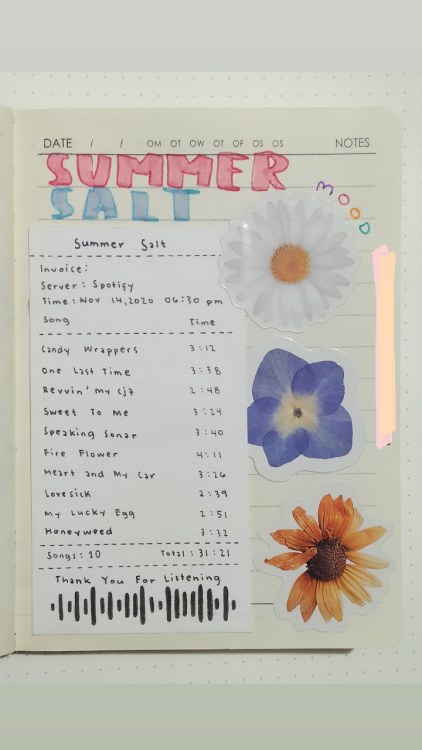 DATE / / OM OT OW OT OF OS OS NOTES
SUMMER
SALT
MOOD
Summer Salt
Invoice:
Server: Spotify
Time: Nov 14,2020 06:30 pm
Song Time
Candy Wrappers 3:12
One Last Time 3:38
Revvin' my cj7 2:48
Sweet To Me 3:24
Speaking Sonar 3:40
Fire Flower 4:11
Heart and My Car 3:26
Lovesick 2:39
My Lucky Egg 2:51
Honeyweed 3:32
Songs: 10 Total: 31:21
Thank You For Listening